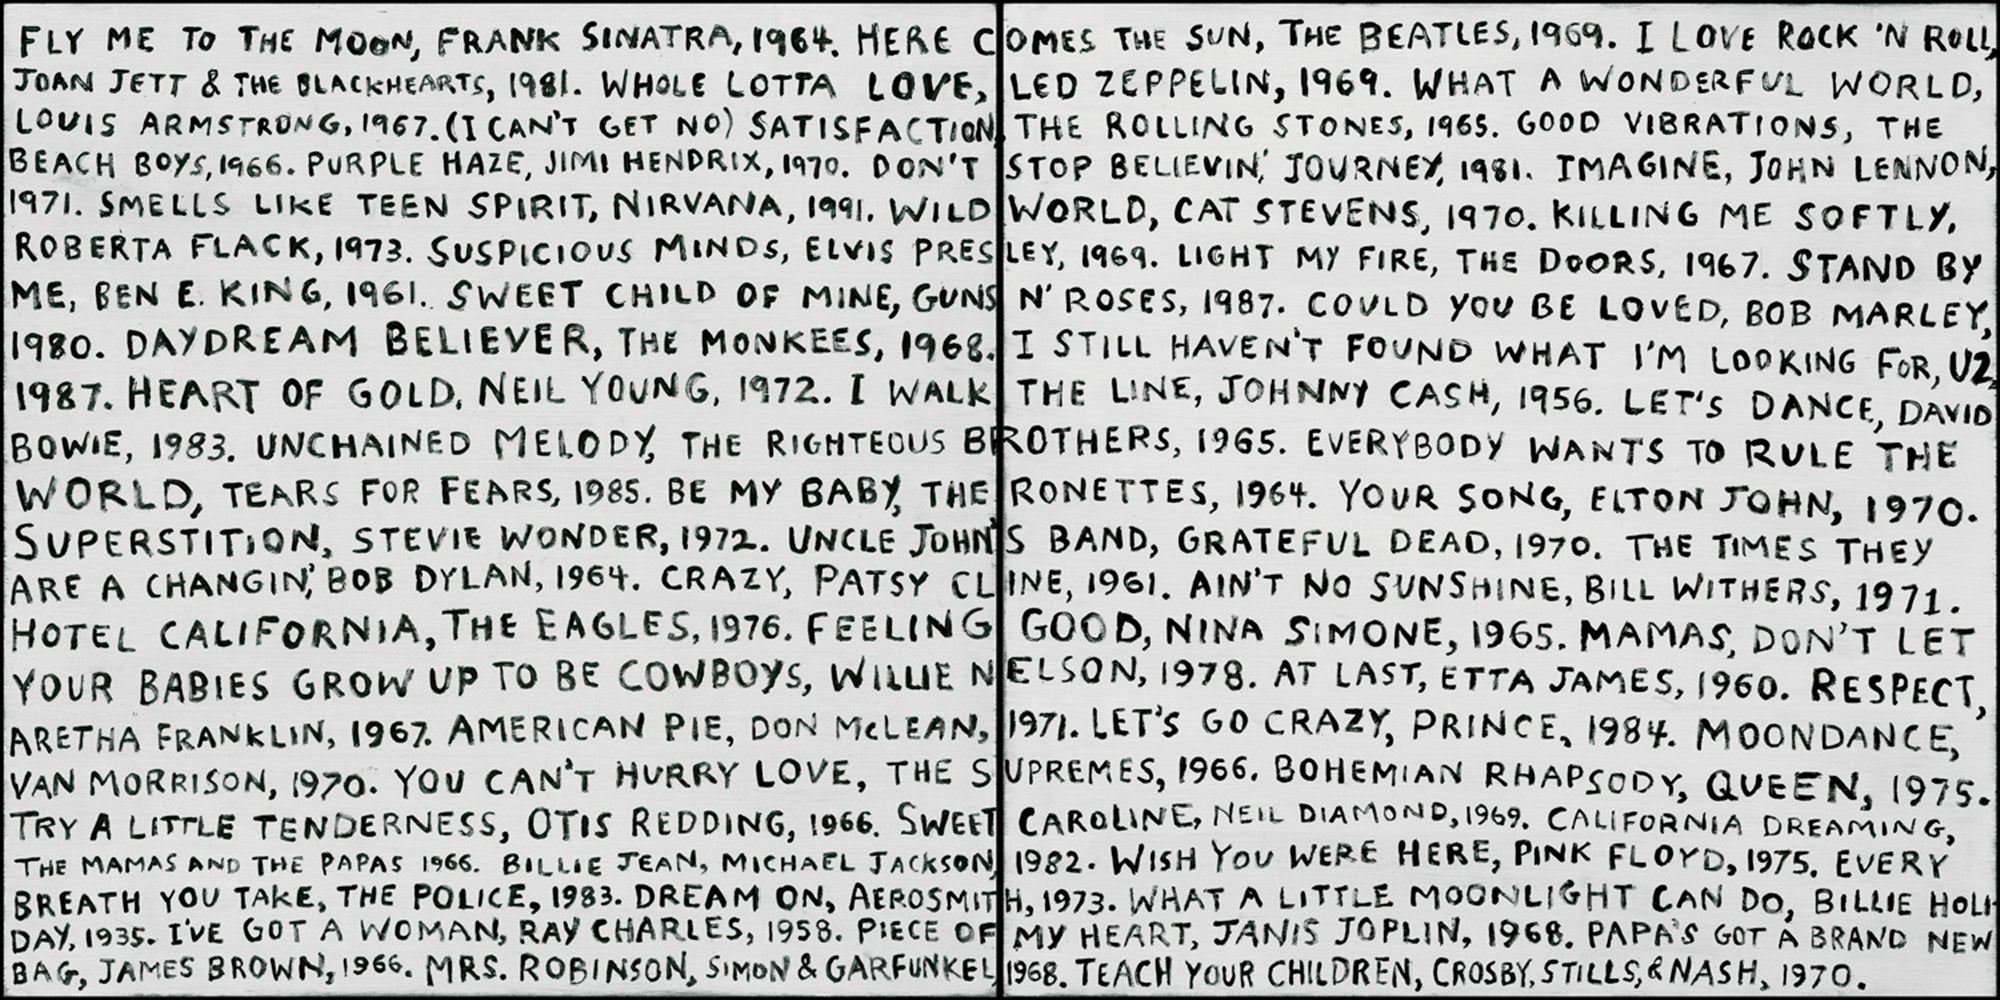 FLY ME TO THE MOON, FRANK SINATRA, 1964. HERE COMES THE SUN, THE BEATLES, 1969. I LOVE ROCK 'N ROLL,
JOAN JETT & THE BLACKHEARTS, 1981. WHOLE LOTTA LOVE, LED ZEPPELIN, 1969. WHAT A WONDERFUL WORLD,
LOUIS ARMSTRONG, 1967. (I CAN'T GET NO) SATISFACTION, THE ROLLING STONES, 1965. GOOD VIBRATIONS, THE
BEACH BOYS, 1966. PURPLE HAZE, JIMI HENDRIX, 1970. DON'T STOP BELIEVIN', JOURNEY, 1981. IMAGINE, JOHN LENNON,
1971. SMELLS LIKE TEEN SPIRIT, NIRVANA, 1991. WILD WORLD, CAT STEVENS, 1970. KILLING ME SOFTLY,
ROBERTA FLACK, 1973. SUSPICIOUS MINDS, ELVIS PRESLEY, 1969. LIGHT MY FIRE, THE DOORS, 1967. STAND BY
ME, BEN E. KING, 1961. SWEET CHILD OF MINE, GUNS N' ROSES, 1987. COULD YOU BE LOVED, BOB MARLEY,
1980. DAYDREAM BELIEVER, THE MONKEES, 1968. I STILL HAVEN'T FOUND WHAT I'M LOOKING FOR, U2,
1987. HEART OF GOLD, NEIL YOUNG, 1972. I WALK THE LINE, JOHNNY CASH, 1956. LET'S DANCE, DAVID
BOWIE, 1983. UNCHAINED MELODY, THE RIGHTEOUS BROTHERS, 1965. EVERYBODY WANTS TO RULE THE
WORLD, TEARS FOR FEARS, 1985. BE MY BABY, THE RONETTES, 1964. YOUR SONG, ELTON JOHN, 1970.
SUPERSTITION, STEVIE WONDER, 1972. UNCLE JOHN'S BAND, GRATEFUL DEAD, 1970. THE TIMES THEY
ARE A CHANGIN', BOB DYLAN, 1964. CRAZY, PATSY CLINE, 1961. AIN'T NO SUNSHINE, BILL WITHERS, 1971.
HOTEL CALIFORNIA, THE EAGLES, 1976. FEELING GOOD, NINA SIMONE, 1965. MAMAS, DON'T LET
YOUR BABIES GROW UP TO BE COWBOYS, WILLIE NELSON, 1978. AT LAST, ETTA JAMES, 1960. RESPECT,
ARETHA FRANKLIN, 1967. AMERICAN PIE, DON McLEAN, 1971. LET'S GO CRAZY, PRINCE, 1984. MOONDANCE,
VAN MORRISON, 1970. YOU CAN'T HURRY LOVE, THE SUPREMES, 1966. BOHEMIAN RHAPSODY, QUEEN, 1975.
TRY A LITTLE TENDERNESS, OTIS REDDING, 1966. SWEET CAROLINE, NEIL DIAMOND, 1969. CALIFORNIA DREAMING,
THE MAMAS AND THE PAPAS 1966. BILLIE JEAN, MICHAEL JACKSON, 1982. WISH YOU WERE HERE, PINK FLOYD, 1975. EVERY
BREATH YOU TAKE, THE POLICE, 1983. DREAM ON, AEROSMITH, 1973. WHAT A LITTLE MOONLIGHT CAN DO, BILLIE HOLI-
DAY, 1935. I'VE GOT A WOMAN, RAY CHARLES, 1958. PIECE OF MY HEART, JANIS JOPLIN, 1968. PAPA'S GOT A BRAND NEW
BAG, JAMES BROWN, 1966. MRS. ROBINSON, SIMON & GARFUNKEL, 1968. TEACH YOUR CHILDREN, CROSBY, STILLS, & NASH, 1970.